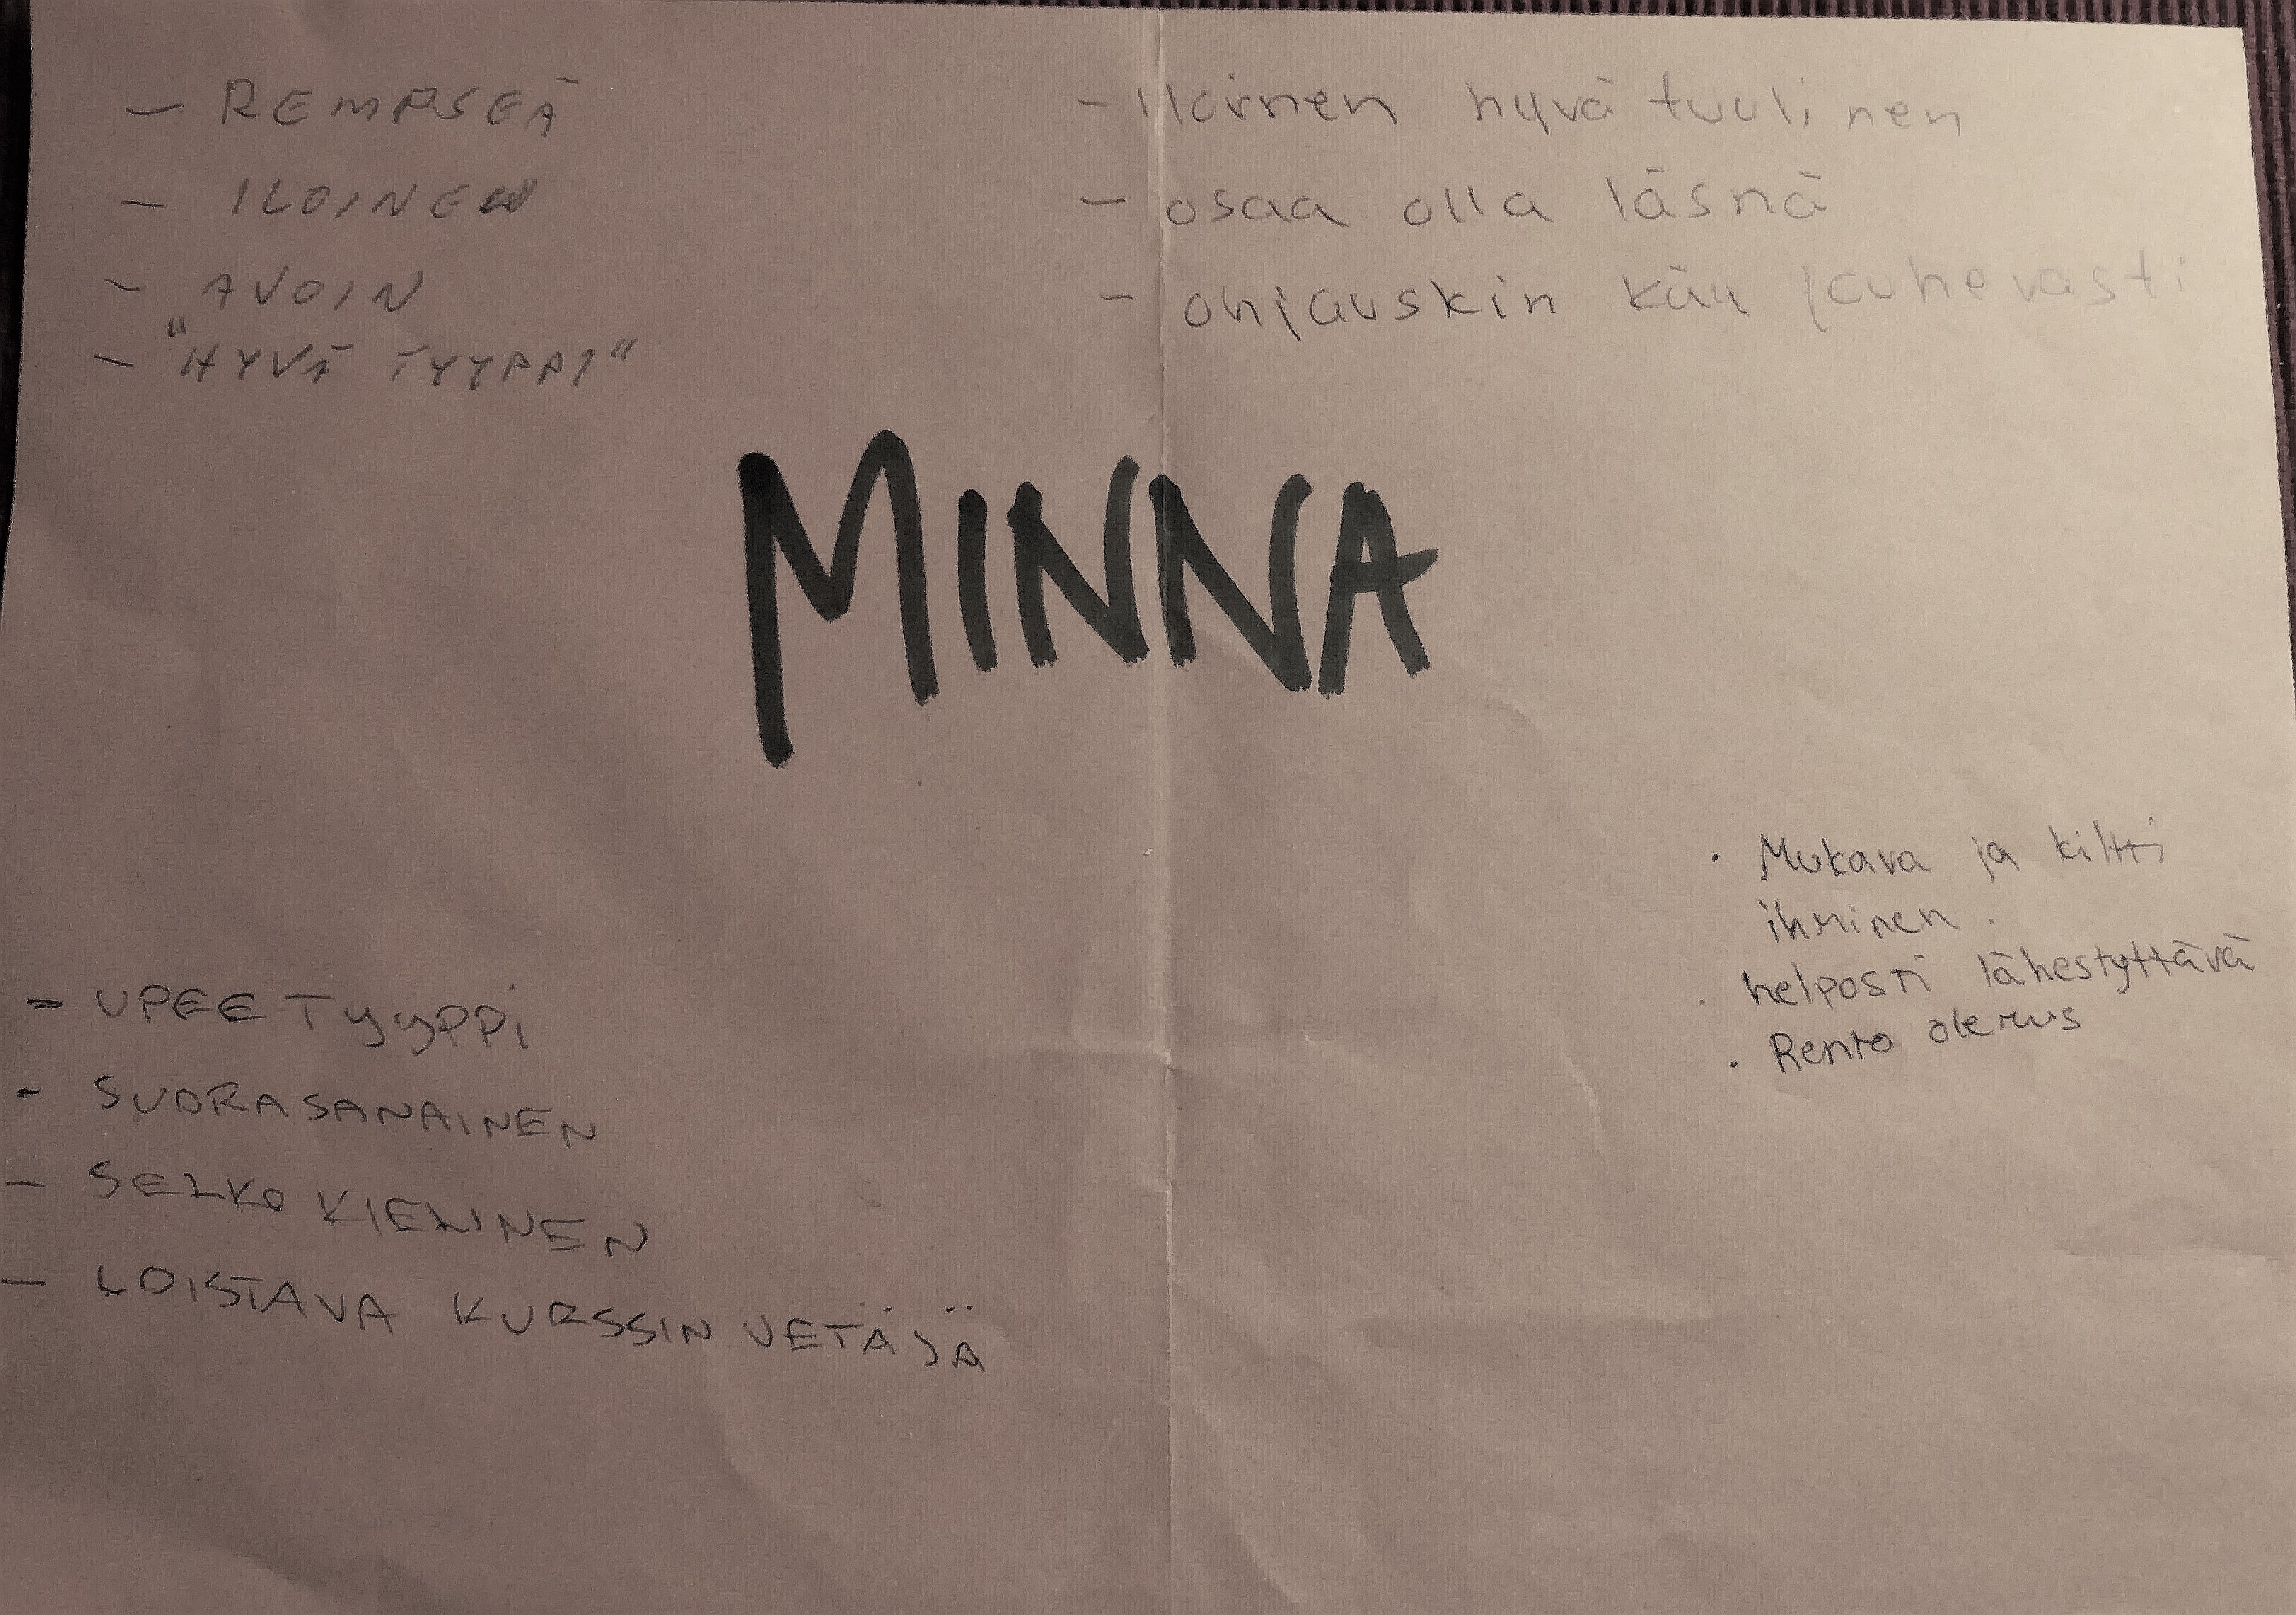 - REMPSEÄ
- ILOINEN
- AVOIN
- "HYVÄ TYYPPI"
- Iloinen hyvä tuulinen
- osaa olla läsnä
- ohjauskin käy jouhevasti
MINNA
• Mukava ja kiltti
ihminen.
• helposti lähestyttävä
• Rento olemus
- UPEE TYYPPI
- SUORASANAINEN
- SELKO KIELINEN
- LOISTAVA KURSSIN VETÄJÄ